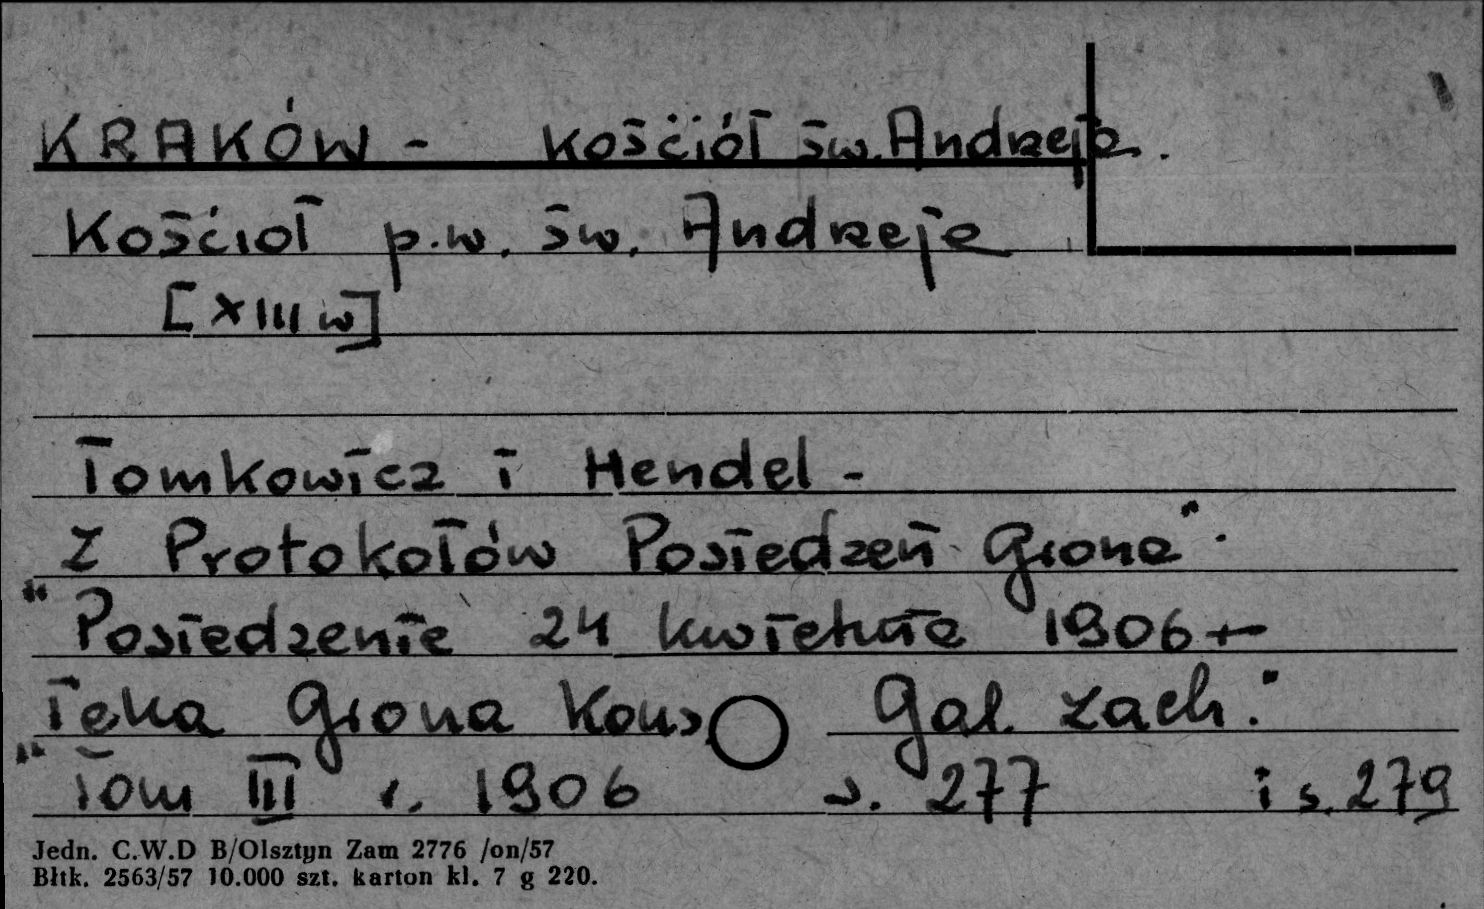 KRAKÓW - kościół św. Andrzeja.
Kościoł p.w. św. Andrzeja
[XIII w]
Tomkowicz i Hendel -
Z Protokołów Posiedzeń Grona".
"Posiedzenie 24 kwietnia 1906 r
Teka Grona Kons. Gal. Zach."
"Tom III r. 1906 s. 277 i s. 279
Jedn. C.W.D B/Olsztyn Zam 2776 /on/57
Błtk. 2563/57 10.000 szt. karton kl. 7 g 220.